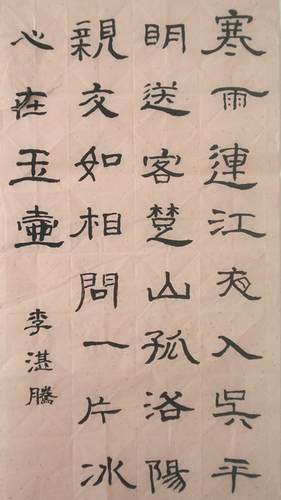 寒雨連江夜入吳平
明送客楚山孤洛陽
親友如相問一片冰
心在玉壺
李湛騰